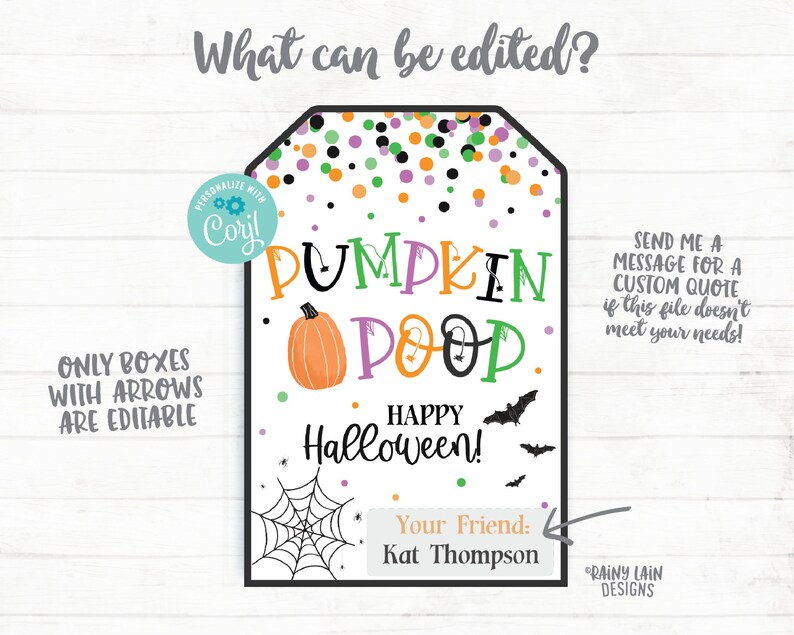 What can be edited?
PERSONALIZE WITH
Corjl
PUMPKIN
POOP
HAPPY
Halloween!
Your Friend:
Kat Thompson
ONLY BOXES
WITH ARROWS
ARE EDITABLE
SEND ME A
MESSAGE FOR A
CUSTOM QUOTE
if this file doesn't
meet your needs!
©RAINY LAIN
DESIGNS